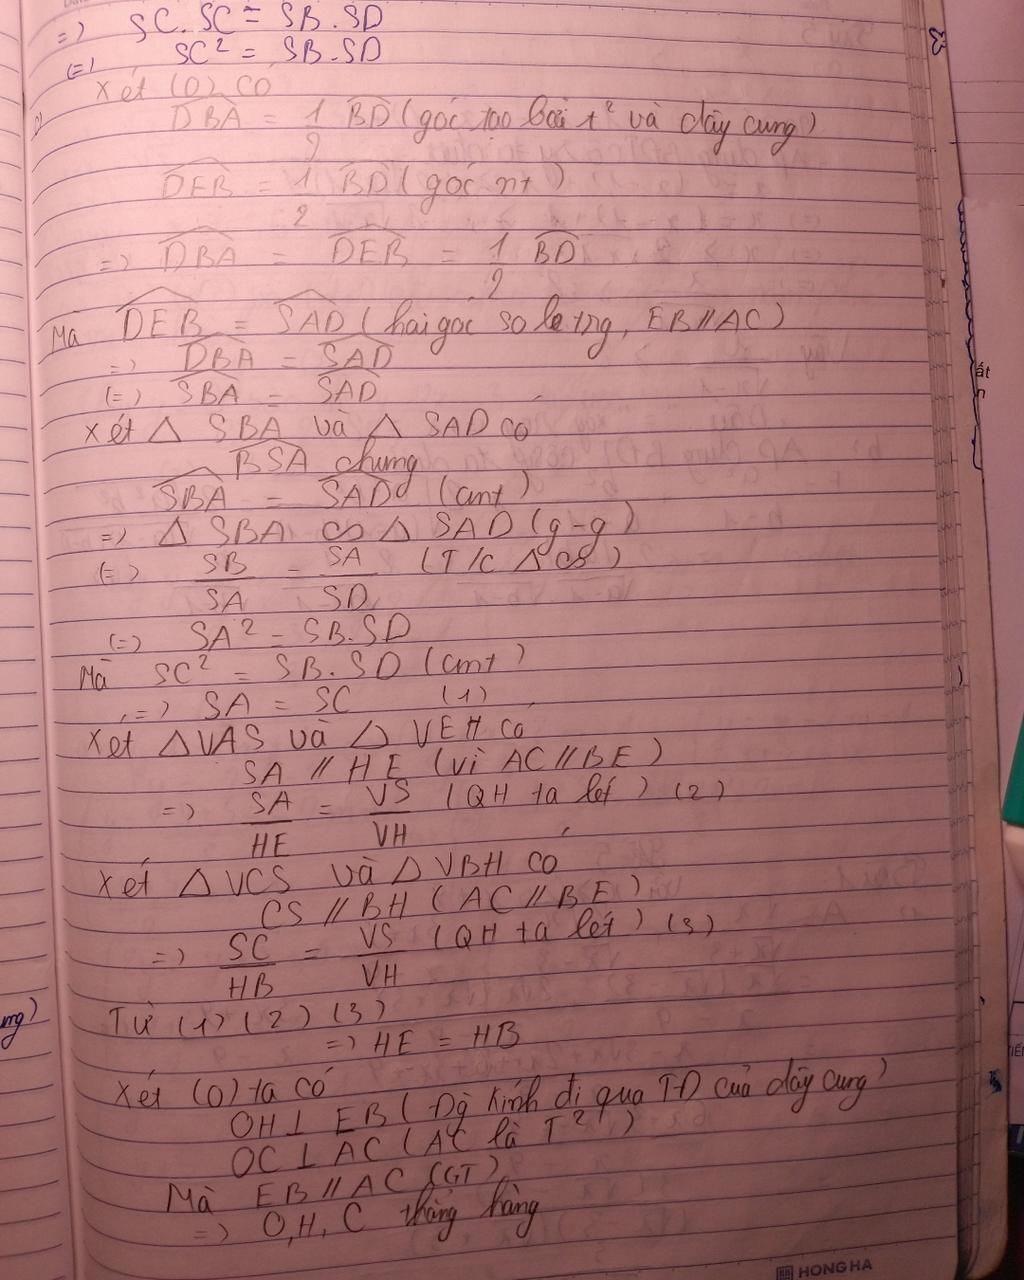 =) SC.SC = SB.SD
(=) SC² = SB.SD
c) Xét (O) có
DBA = 1/2 BD (góc tạo bởi t² và dây cung)
DEB = 1/2 BD (góc nt)
=) DBA = DEB = 1/2 BD
Mà DEB = SAD (hai góc so le trg, EB // AC)
=) DBA = SAD
(=) SBA = SAD
Xét △ SBA và △ SAD có
BSA chung
SBA = SAD (cmt)
=) △ SBA ∽ △ SAD (g-g)
(=) SB/SA = SA/SD (T/c △ ∽)
(=) SA² = SB.SD
Mà SC² = SB.SD (cmt)
=) SA = SC (1)
Xét △VAS và △ VEH có
SA // HE (vì AC // BE)
=) SA/HE = VS/VH (QH ta lét) (2)
Xét △ VCS và △ VBH có
CS // BH (AC // BE)
=) SC/HB = VS/VH (QH ta lét) (3)
Từ (1) (2) (3)
=) HE = HB
Xét (O) ta có
OH ⊥ EB (Đg kính đi qua TĐ của dây cung)
OC ⊥ AC (AC là T²)
Mà EB // AC (GT)
=) O, H, C thẳng hàng
ung)
ất
HONG HA